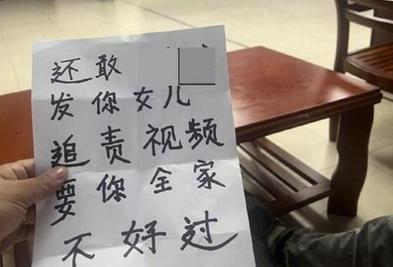 还敢
发你女儿
追责视频
要你全家
不好过